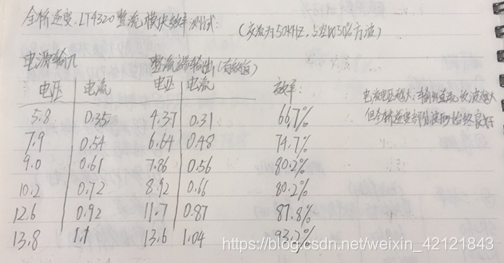 全桥逆变, LT4320整流模块效率测试: (交流为50kHz, 占空比50%方波)
电源输入 整流端输出(有效值)
电压 电流 电压 电流 效率:
5.8 0.35 4.37 0.31 66.7%
7.9 0.54 6.64 0.48 74.7%
9.0 0.61 7.86 0.56 80.2%
10.2 0.72 8.92 0.66 80.2%
12.6 0.92 11.7 0.87 87.8%
13.8 1.1 13.6 1.04 93.2%
https://blog.csdn.net/weixin_42121843